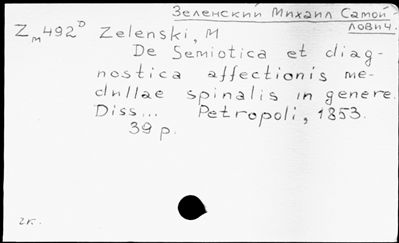 Зеленский Михаил Самой-
лович.
Zм492D Zelenski, M
De Semiotica et diag-
nostica affectionis me-
dullae spinalis in genere.
Diss... Petropoli, 1853.
39 p.
2к.